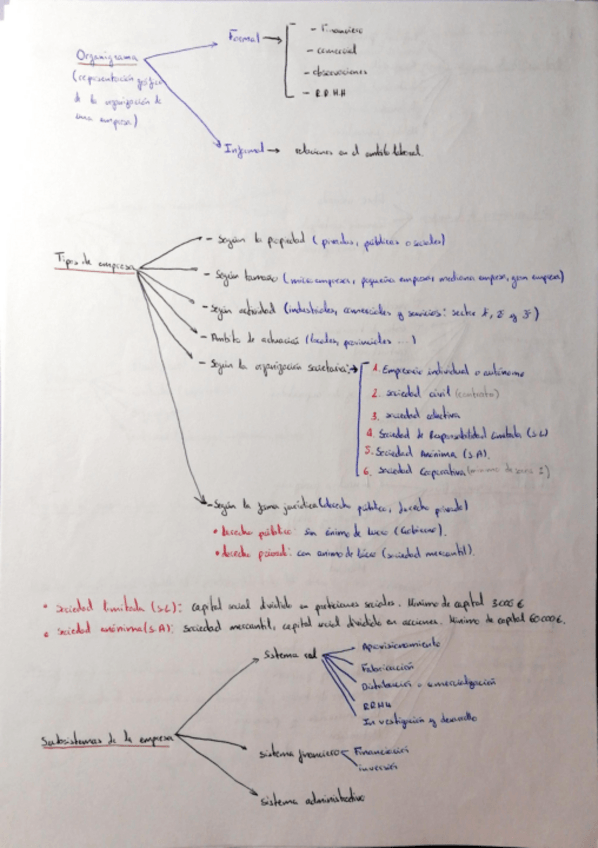 Organigrama
(representación gráfica
de la organización de
una empresa)
Formal →
- Financiero
- comercial
- observaciones
- R.R.H.H
Informal → relaciones en el ámbito laboral.
Tipos de empresa
- Según la propiedad (privadas, públicas o sociales)
- Según tamaño (micro empresa, pequeña empresa, mediana empresa, gran empresa)
- Según actividad (industriales, comerciales y servicios: sector 1º, 2º y 3º)
- Ámbito de actuación (locales, provinciales ...)
- Según la organización societaria: →
1. Empresario individual o autónomo
2. sociedad civil (contrato)
3. sociedad colectiva
4. Sociedad de Responsabilidad Limitada (S.L)
5. Sociedad Anónima (S.A).
6. Sociedad Cooperativa (mínimo de
- Según la forma jurídica (derecho público, derecho privado)
• Derecho público: sin ánimo de lucro (Gobierno).
• derecho privado: con animo de lucro (sociedad mercantil).
• Sociedad limitada (S.L): capital social dividido en participaciones sociales. Mínimo de capital 3.000 €
• Sociedad anónima (S.A): Sociedad mercantil, capital social dividido en acciones. Mínimo de capital 60.000 €.
Subsistemas de la empresa
Sistema real
Aprovisionamiento
Fabricación
Distribución o comercialización
RRHH
Investigación y desarrollo
sistema financiero
Financiación
inversión
sistema administrativo